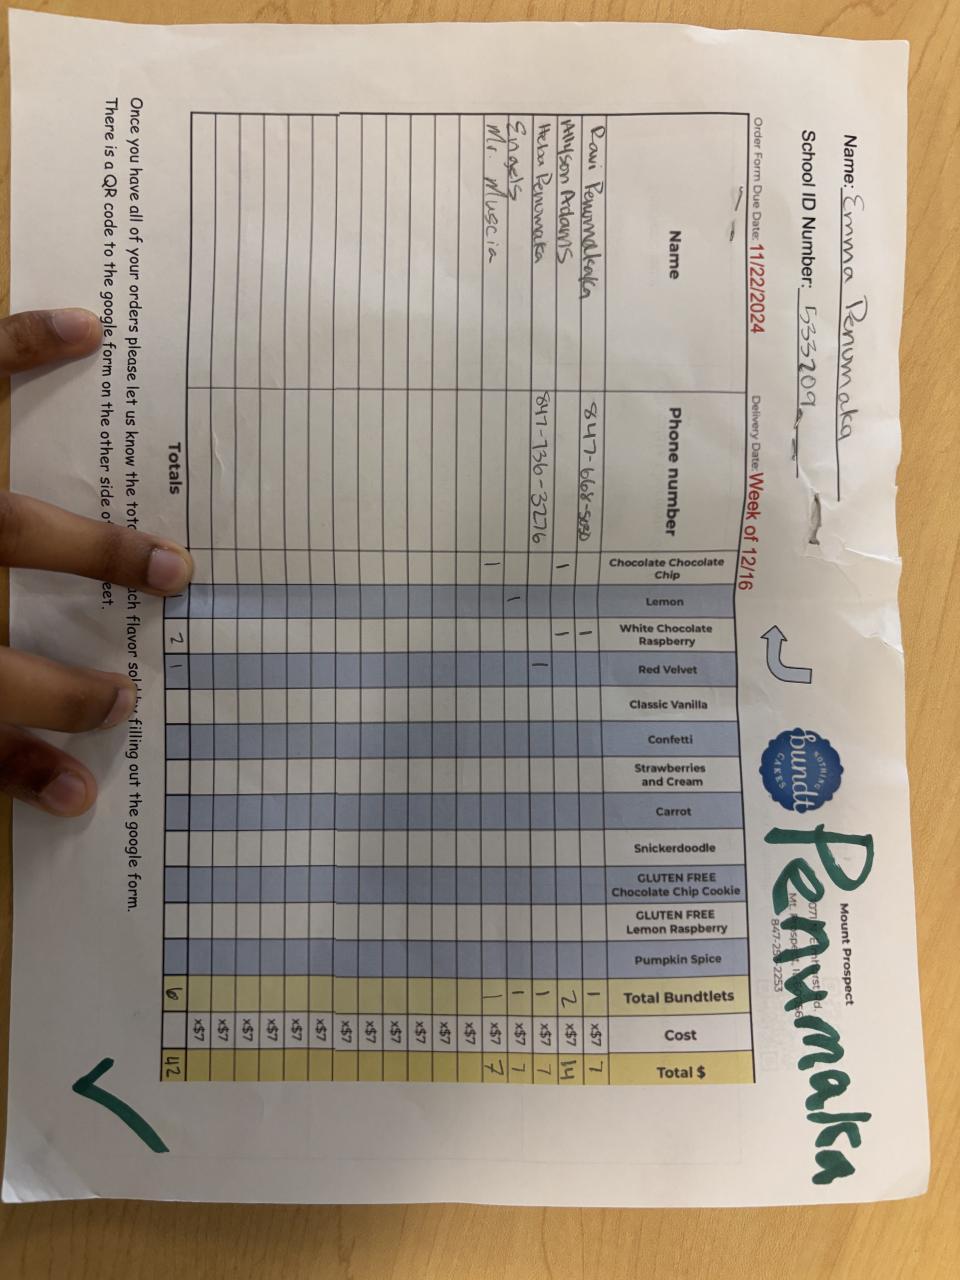 Name: Emma Penumaka
School ID Number: 533209
Order Form Due Date: 11/22/2024 Delivery Date: Week of 12/16
NOTHING
bundt
CAKES
Mount Prospect
Mt. Prospect,
847-25 -2253
Penumaka
Name Phone number Chocolate Chocolate Chip Lemon White Chocolate Raspberry Red Velvet Classic Vanilla Confetti Strawberries and Cream Carrot Snickerdoodle GLUTEN FREE Chocolate Chip Cookie GLUTEN FREE Lemon Raspberry Pumpkin Spice Total Bundtlets Cost Total $
Ravi Penumakaka 847-668-5030 1 1 x$7 7
Allyson Adams 1 1 2 x$7 14
Heba Penumaka 847-736-3276 1 1 x$7 7
Engels 1 1 x$7 7
Mr. Muscia 1 1 x$7 7
x$7
x$7
x$7
x$7
x$7
x$7
x$7
x$7
x$7
x$7
x$7
x$7
Totals 1 2 1 6 42
Once you have all of your orders please let us know the tot ach flavor sold by filling out the google form.
There is a QR code to the google form on the other side of eet.